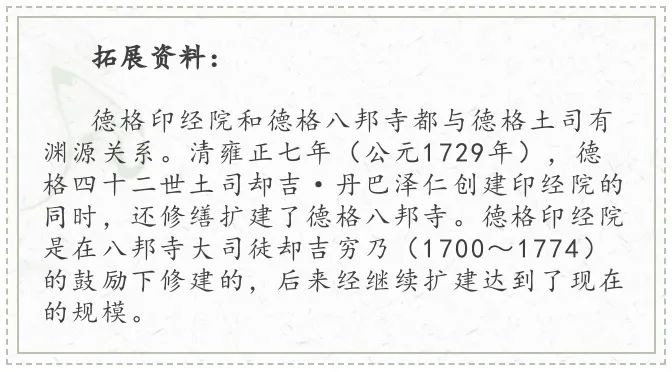 拓展资料：
德格印经院和德格八邦寺都与德格土司有
渊源关系。清雍正七年（公元1729年），德
格四十二世土司却吉·丹巴泽仁创建印经院的
同时，还修缮扩建了德格八邦寺。德格印经院
是在八邦寺大司徒却吉穷乃（1700～1774）
的鼓励下修建的，后来经继续扩建达到了现在
的规模。